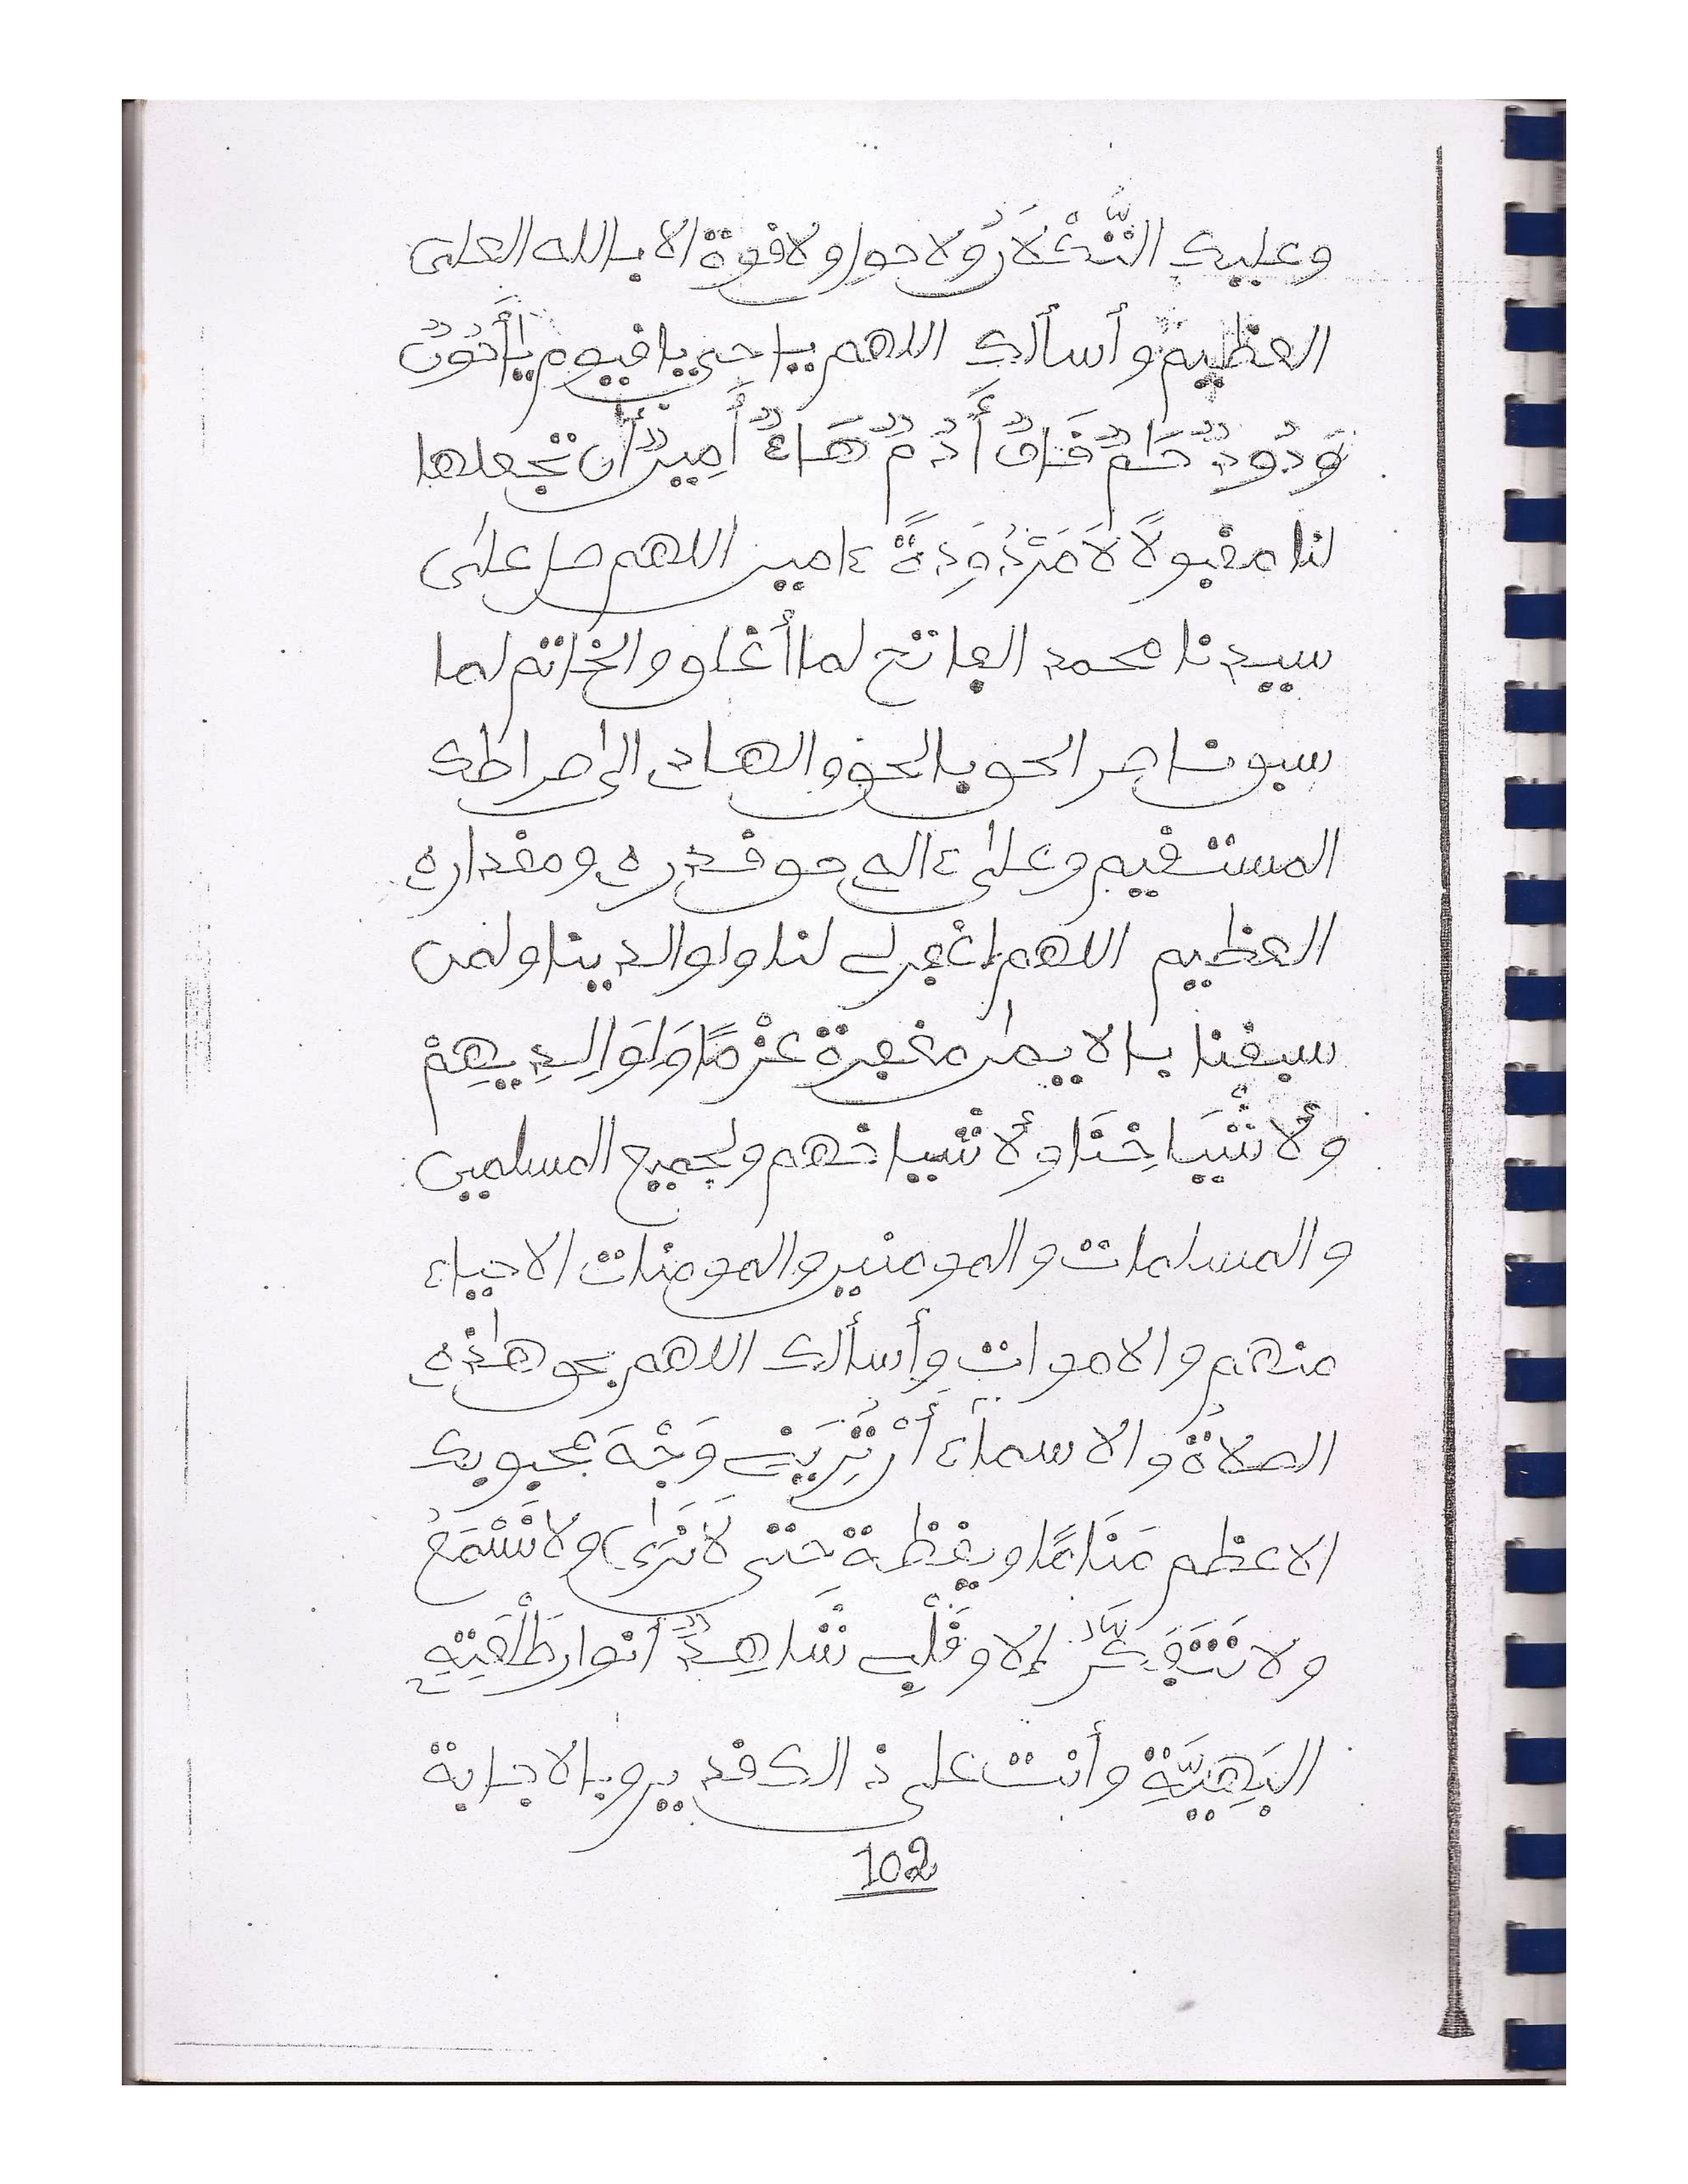 وعليك التُّكْلَانُ ولا حول ولا قوة الا بالله العلى
العظيم وأسألك اللهم يا حى يا قيوم يا
أن تجعلها
لنا مقبولًا لَا مَرْدُودَةً ءامين اللهم صل على
سيدنا محمد الفاتح لما أغلق والخاتم لما
سبق ناصر الحق بالحق والهادى الى صراطك
المستقيم وعلى ءاله حق قدره ومقداره
العظيم اللهم اغفر لى لنا ولوالدينا ولمن
سبقنا بالايمٰن مغفرة عَزْمًا وَلِوَالِدِيهِمْ
ولأشْيَاخِنَا ولأشياخهم ولجميع المسلمين
والمسلمات والمومنين والمومنات الاحياء
منهم والاموات وأسألك اللهم بحق هٰذه
الصلاةُ والاسماء أَنْ تُرِيَنِى وَجْهَ محبوبك
الاعظم مَنَامًا ويقظة حتى لَا نَرَىٰ ولا نَسْمَعُ
ولا نَتَفَكَّرُ إلا وقَلْبِى شَاهِدٌ أنوار طَلْعَتِهِ
البَهِيَّةِ وأنت على ذالك قدير وبالاجابة
102